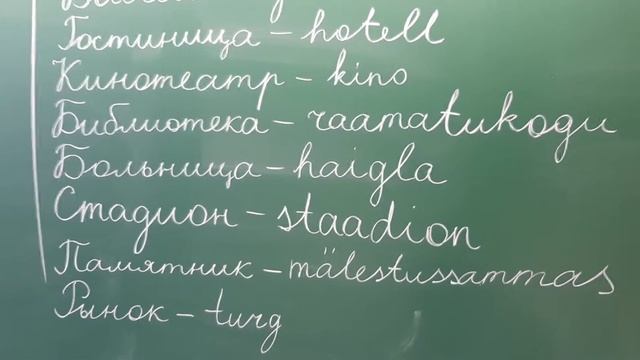 Гостиница – hotell
Кинотеатр – kino
Библиотека – raamatukogu
Больница – haigla
Стадион – staadion
Памятник – mälestussammas
Рынок – turg